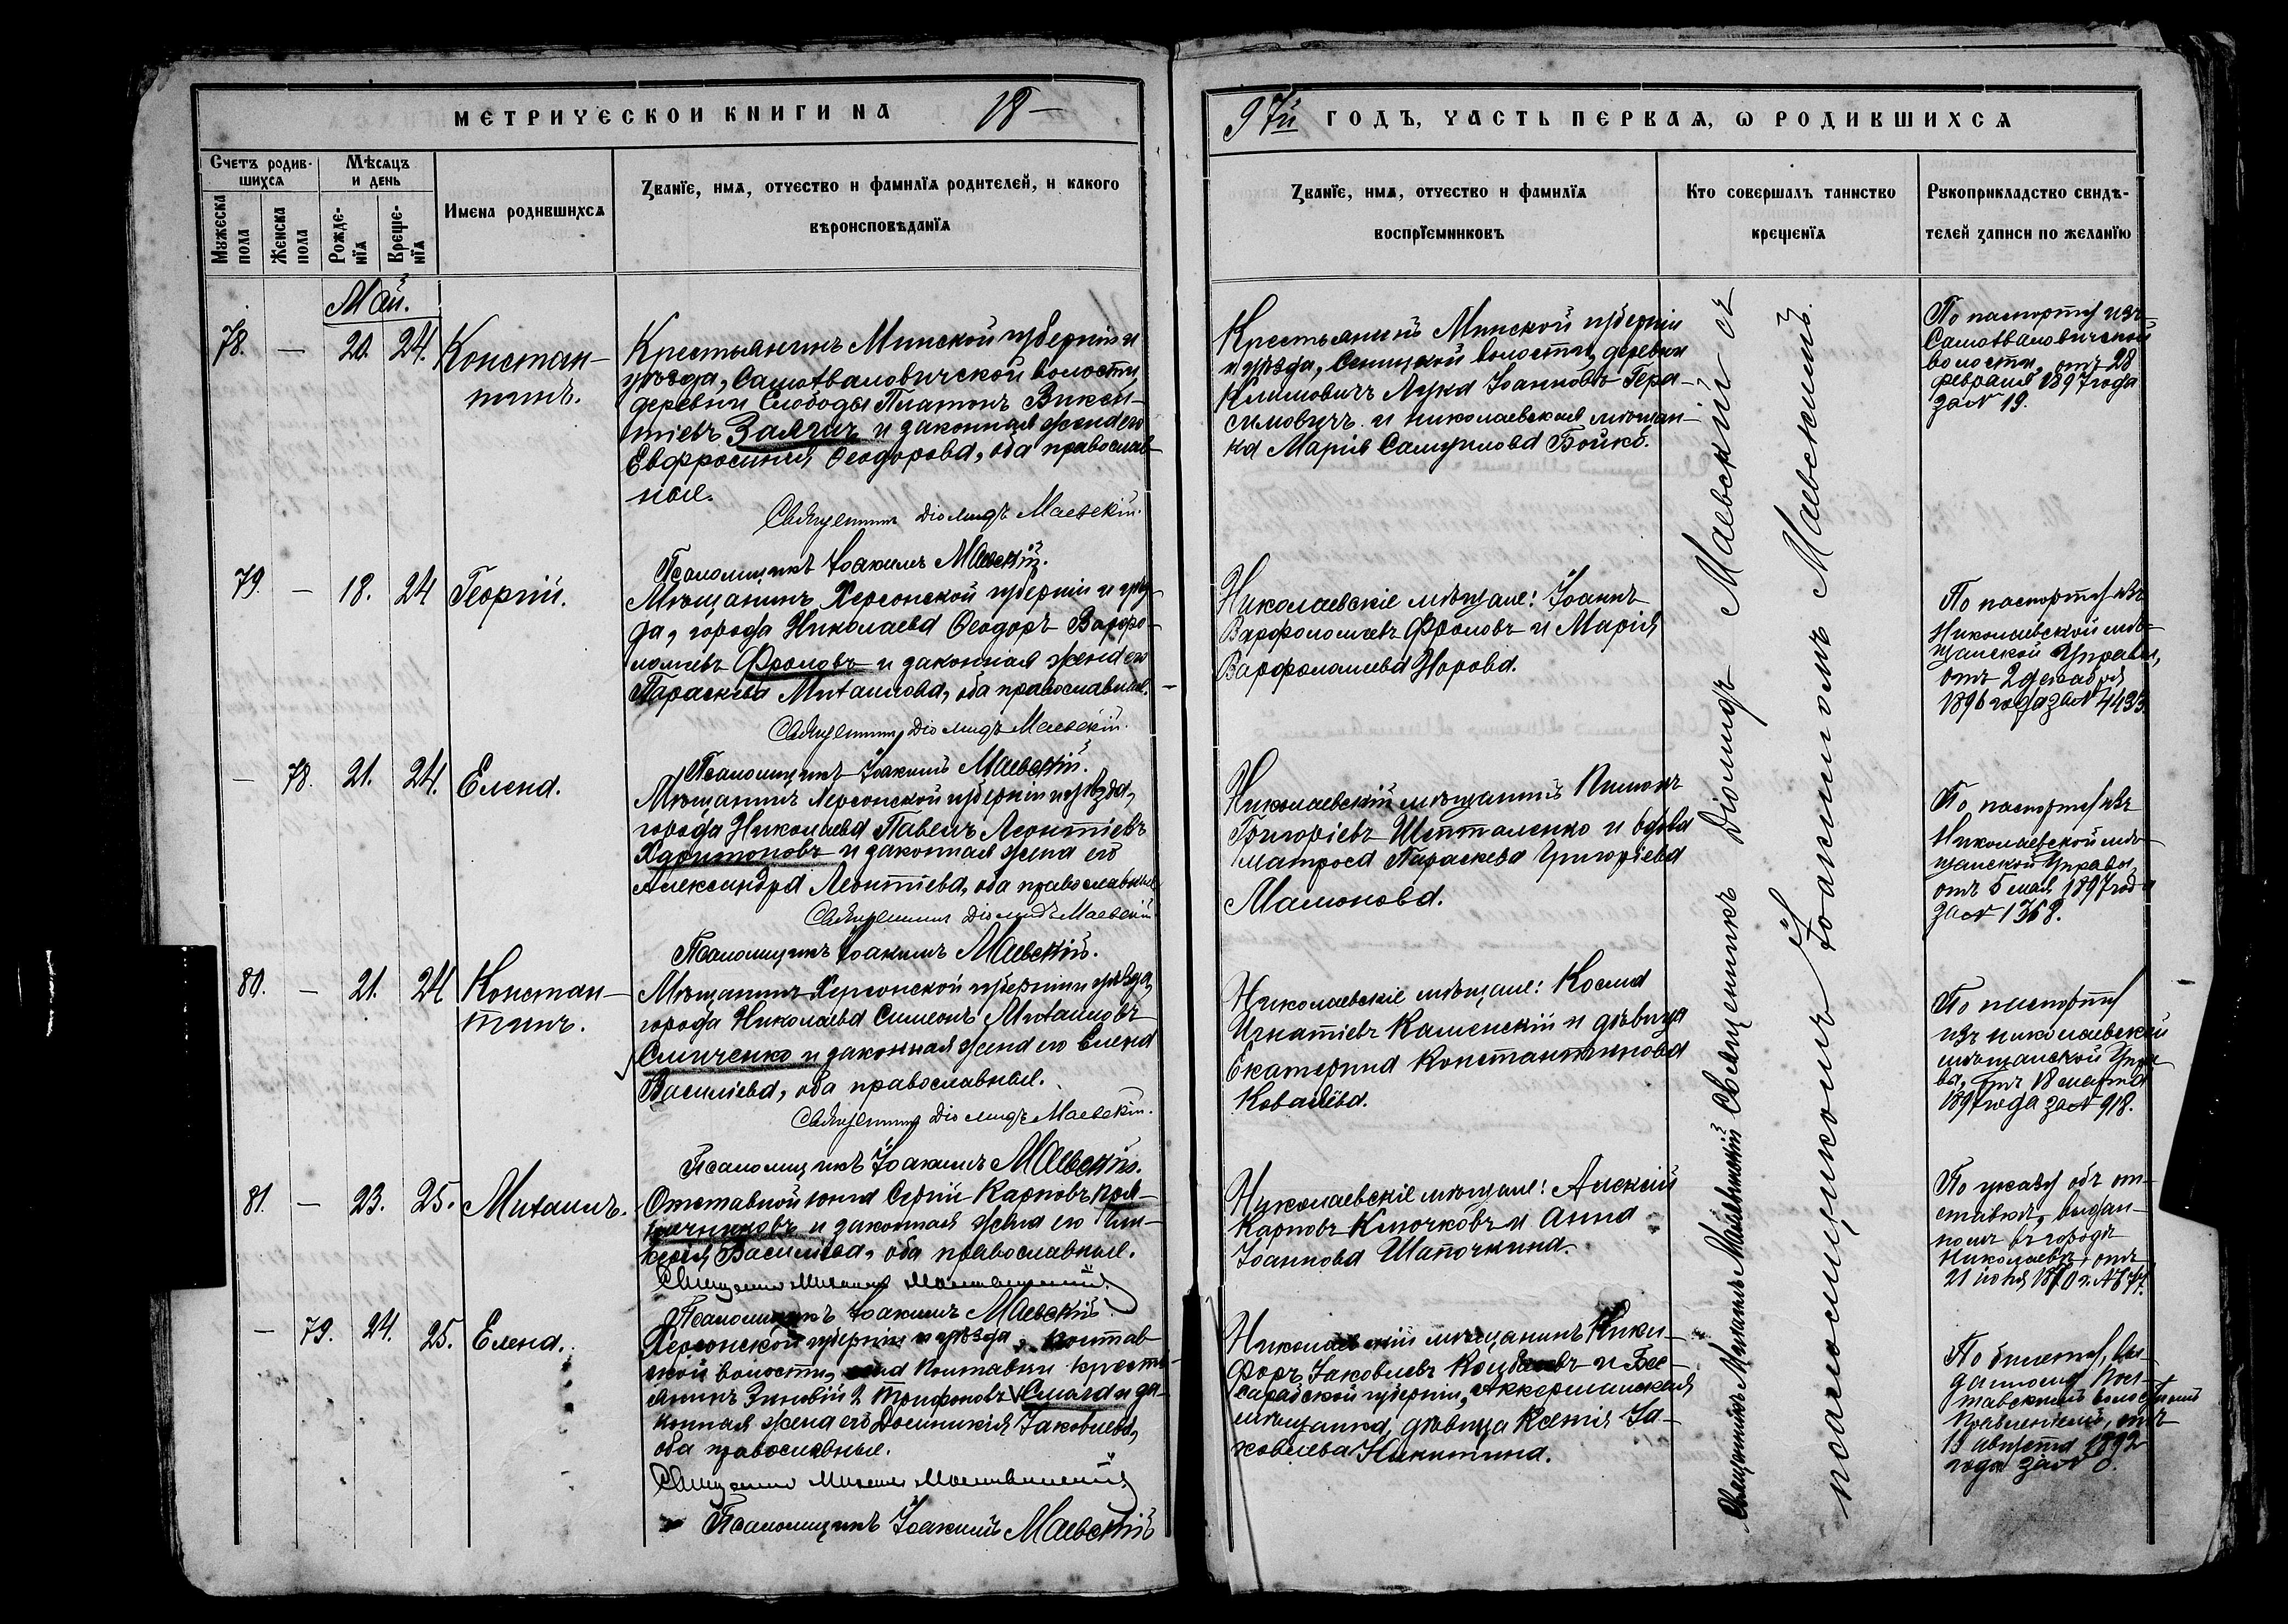 МЕТРИЧЕСКОЙ КНИГИ НА 18
97й ГОДЪ, ЧАСТЬ ПЕРВАѦ, Ѡ РОДИВШИХСѦ
Счетъ родив-
шихсѧ
Мѣсѧцъ
и день
Мужеска
пола
Женска
пола
Рожде-
нїѧ
Креще-
нїѧ
Имена родившихсѧ
Званїе, имѧ, отчество и фамилїѧ родителей, и какого
вѣроисповѣданїѧ
Званїе, имѧ, отчество и фамилїѧ
воспрїемниковъ
Кто совершалъ таинство
крещенїѧ
Рукоприкладство свидѣ-
телей записи по желанїю
Май.
78. — 20. 24. Констан-
тинъ.
Крестьянинъ Минской губерніи и
уѣзда, Самохваловичской волости,
деревни Слободы Платонъ Викен-
тіевъ и законная жена его
Евфросинія Ѳеодорова, оба православ-
ные.
Священникъ Діомидъ Маевскій.
Псаломщикъ Іоакимъ Маевскій.
Крестьянинъ Минской губерніи
и уѣзда, Сеницкой волости, деревни
Климовичъ Лука Іоанновъ Гера-
симовичъ и николаевская мѣщан-
ка Марія Самуилова Бойко.
По паспорту изъ
Самохваловичской
волости, отъ 28
февраля 1897 года
за № 19.
79. — 18. 24 Георгій.
Мѣщанинъ Херсонской губерніи и уѣз-
да, города Николаева Ѳеодоръ Варѳо-
ломеевъ Фроловъ и законная жена его
Параскева Михаилова, оба православные.
Священникъ Діомидъ Маевскій.
Псаломщикъ Іоакимъ Маевскій.
Николаевскіе мѣщане: Іоаннъ
Варѳоломеевъ Фроловъ и Марія
Варѳоломеева Норова.
По паспорту изъ
Николаевской мѣ-
щанской Управы,
отъ 2 декабря
1896 года за № 4433.
— 78. 21. 24. Елена.
Мѣщанинъ Херсонской губерніи и уѣзда,
города Николаева Павелъ Леонтіевъ
Харитоновъ и законная жена его
Александра Леонтіева, оба православные
Священникъ Діомидъ Маевскій.
Псаломщикъ Іоакимъ Маевскій.
Николаевскій мѣщанинъ Пименъ
Григоріевъ Шепталенко и вдова
матроса Параскева Григоріева
Мамонова.
По паспорту изъ
Николаевской мѣ-
щанской Управы,
отъ 5 мая 1897 года
за № 1368.
80. — 21. 24 Констан-
тинъ.
Мѣщанинъ Херсонской губерніи и уѣзда,
города Николаева Симеонъ Михаиловъ
и законная жена его Елена
Василіева, оба православные.
Священникъ Діомидъ Маевскій.
Псаломщикъ Іоакимъ Маевскій.
Николаевскіе мѣщане: Косма
Игнатіевъ Каменскій и дѣвица
Екатерина Константинова
Ковалёва.
По паспорту
изъ николаевской
мѣщанской Упра-
вы, отъ 18 марта
1897 года за № 918.
81. — 23. 25. Михаилъ.
Отставной юнга Сергій Карповъ
и законная жена его Гли-
керія Василіева, оба православные.
Псаломщикъ Іоакимъ Маевскій.
Николаевскіе мѣщане: Алексій
Карповъ Клочковъ и Анна
Іоаннова Шапочкина.
По указу объ от-
ставкѣ, выдан-
ному въ городѣ
Николаевѣ, отъ
21 іюня 1870 г. № 74.
— 79. 24. 25. Елена.
Херсонской губерніи и уѣзда, Полтав-
ской волости, села Полтавки кресть-
янинъ Зиновій Трифоновъ и за-
конная жена его Домникія Іаковлева,
оба православные.
Псаломщикъ Іоакимъ Маевскій
Николаевскій мѣщанинъ Ники-
форъ Іаковлевъ и Бес-
сарабской губерніи, Аккерманская
мѣщанка, дѣвица Ксенія Іа-
ковлева Никитина.
По билету, вы-
данному Пол-
тавскимъ волостнымъ
Правленіемъ, отъ
13 августа 1892
года за №
Священникъ Діомидъ Маевскій съ
псаломщикомъ Іоакимомъ Маевскимъ.
Священникъ Михаилъ